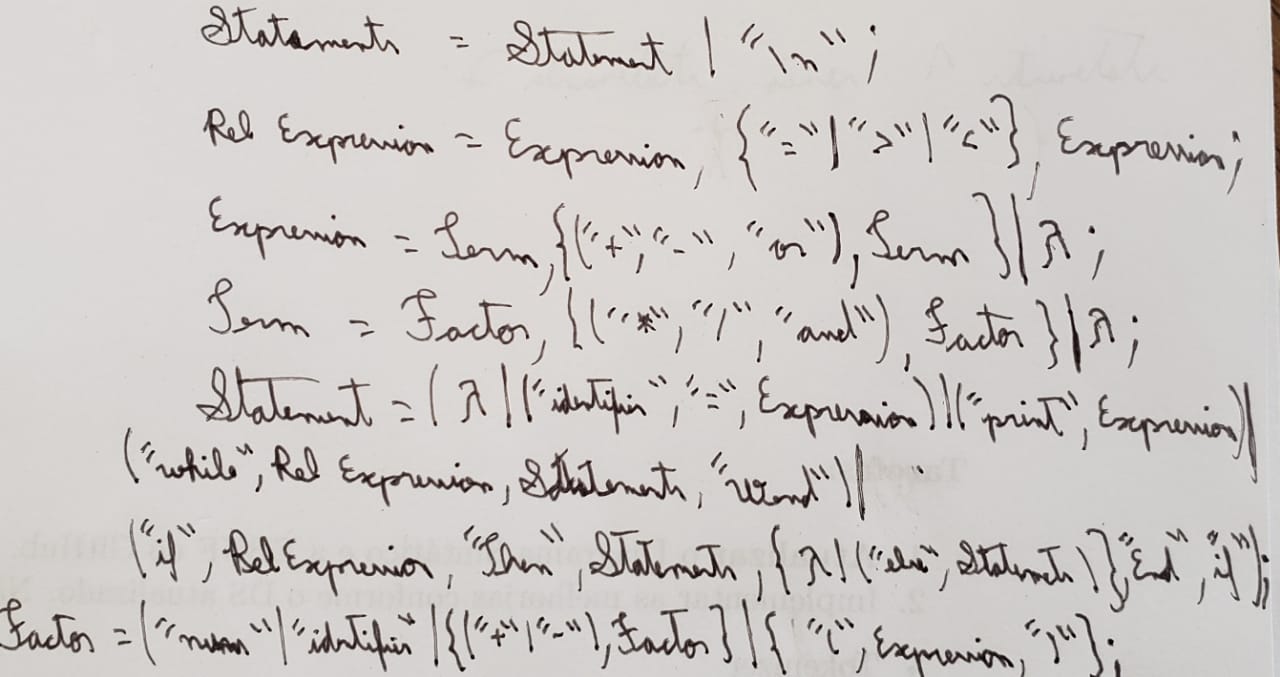 Statements = Statement | "\n" ;
Rel Expression = Expression, {"=" | ">" | "<"}, Expression;
Expression = Term, {("+", "-", "or"), Term } | λ ;
Term = Factor, {("*", "/", "and"), Factor } | λ ;
Statement = ( λ | ("identifier", "=", Expression) | ("print", Expression) |
("while", Rel Expression, Statements, "Wend") |
("if", Rel Expression, "Then", Statements, { λ | ("else", Statements ) }, "End", "if");
Factor = ("num" | "identifier" | {("+" | "-"), Factor } | { "(", Expression, ")" };